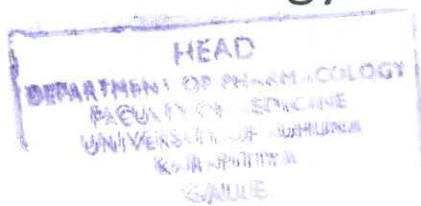 HEAD
DEPARTMENT OF PHARMACOLOGY
FACULTY OF MEDICINE
UNIVERSITY OF RUHUNA
KARAPITIYA
GALLE